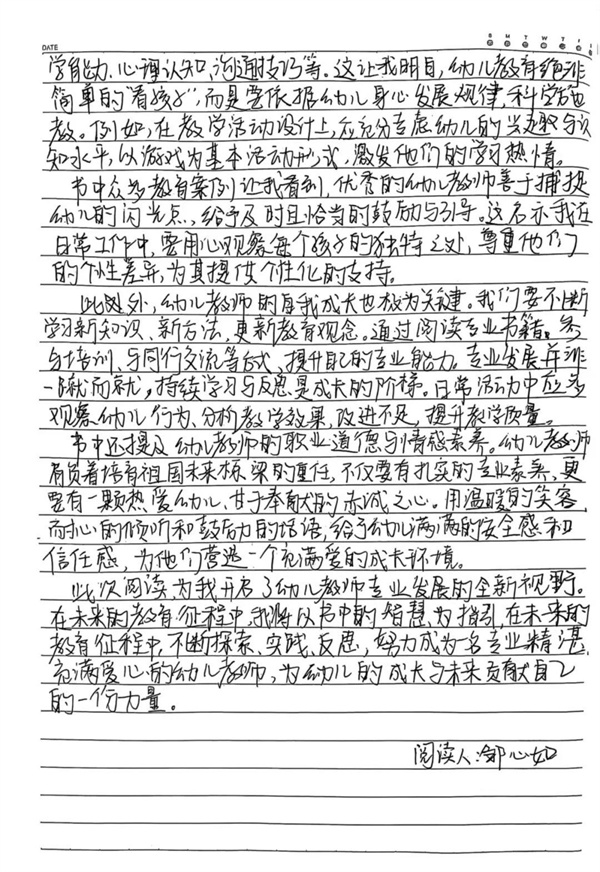 DATE
S M T W T F S
学能力、心理认知、沟通技巧等。这让我明白,幼儿教育绝非
简单的"看孩子",而是要依据幼儿身心发展规律,科学施
教。例如,在教学活动设计上,应充分考虑幼儿的兴趣与认
知水平,以游戏为基本活动形式,激发他们的学习热情。
书中众多教育案例让我看到,优秀的幼儿教师善于捕捉
幼儿的闪光点、给予及时且恰当的鼓励与引导。这启示我在
日常工作中,要用心观察每个孩子的独特之处,尊重他们
的个性差异,为其提供个性化的支持。
此外,幼儿教师的自我成长也极为关键。我们要不断
学习新知识、新方法,更新教育观念。通过阅读专业书籍、参
与培训、与同行交流等方式,提升自己的专业能力。专业发展并非
一蹴而就,持续学习与反思是成长的阶梯。日常活动中应多
观察幼儿行为、分析教学效果,改进不足,提升教学质量。
书中还提及幼儿教师的职业道德与情感素养。幼儿教师
肩负着培育祖国未来栋梁的重任,不仅要有扎实的专业素养,更
要有一颗热爱幼儿、甘于奉献的赤诚之心。用温暖的笑容、
耐心的倾听和鼓励的话语,给予幼儿满满的安全感和
信任感,为他们营造一个充满爱的成长环境。
此次阅读为我开启了幼儿教师专业发展的全新视野。
在未来的教育征程中,我将以书中的智慧为指引,在未来的
教育征程中,不断探索、实践、反思,努力成为一名专业精湛、
充满爱心的幼儿教师,为幼儿的成长与未来贡献自己
的一份力量。
阅读人:邹心如